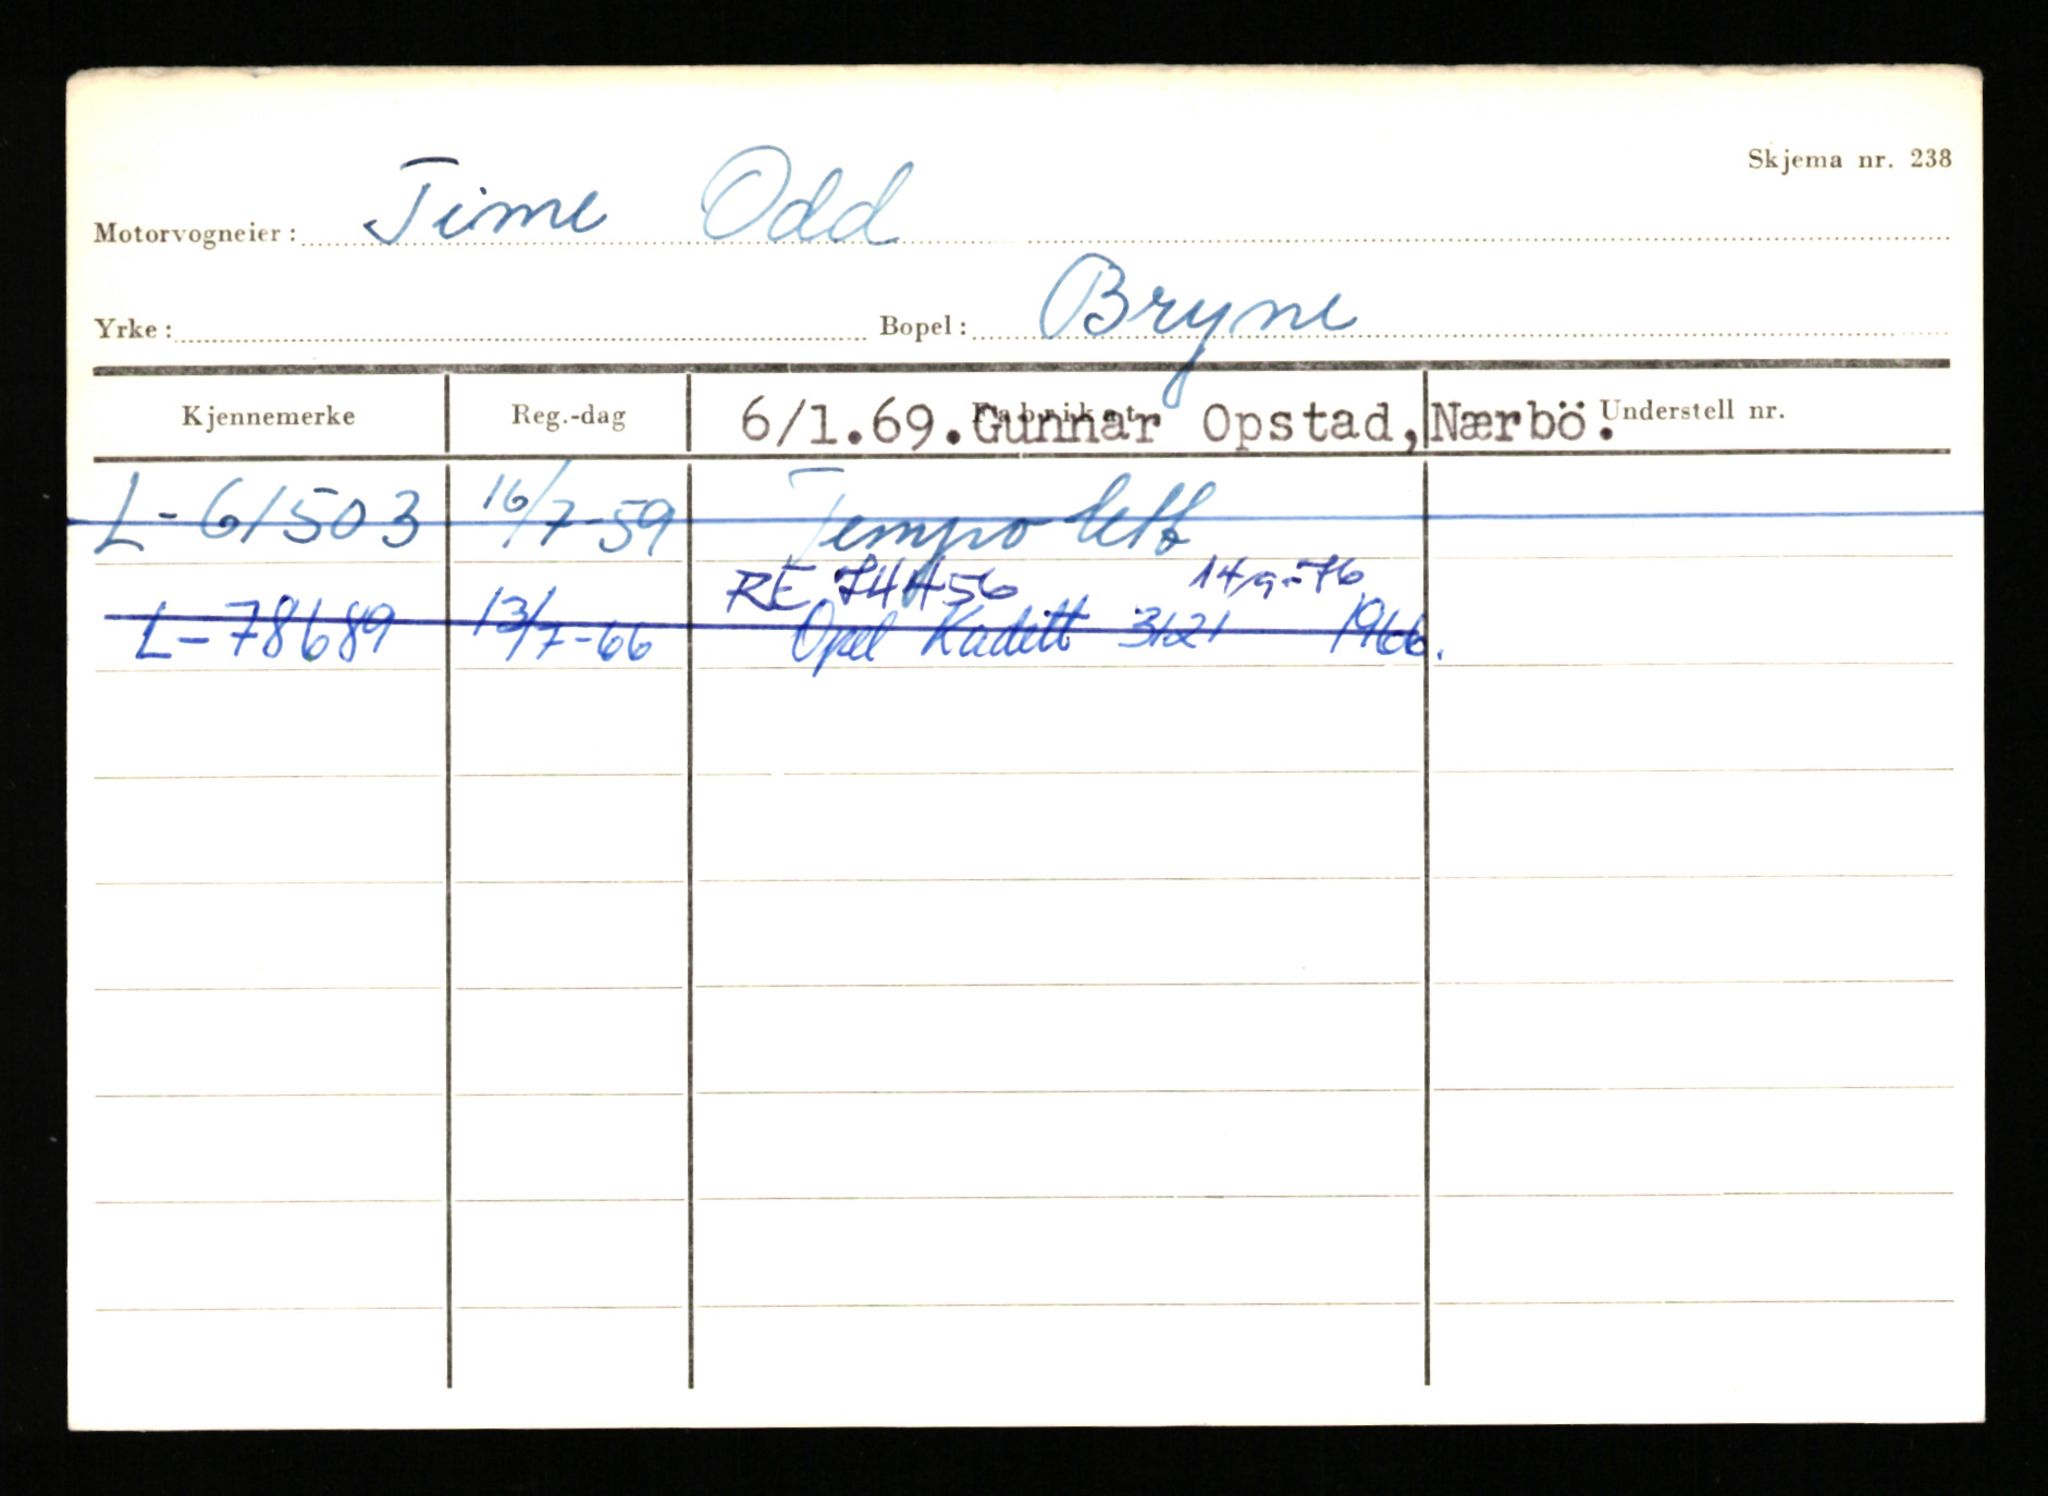 Skjema nr. 238
Motorvogneier: Time Odd
Yrke: Bopel: Bryne
Kjennemerke Reg.-dag Fabrikat Understell nr.
6/1.69.Gunnar Opstad,Nærbö.
L-61503 16/7-59 Tempo lett
RE 74456 14/9-76
L-78689 13/7-66 Opel Kadett 3121 1966.